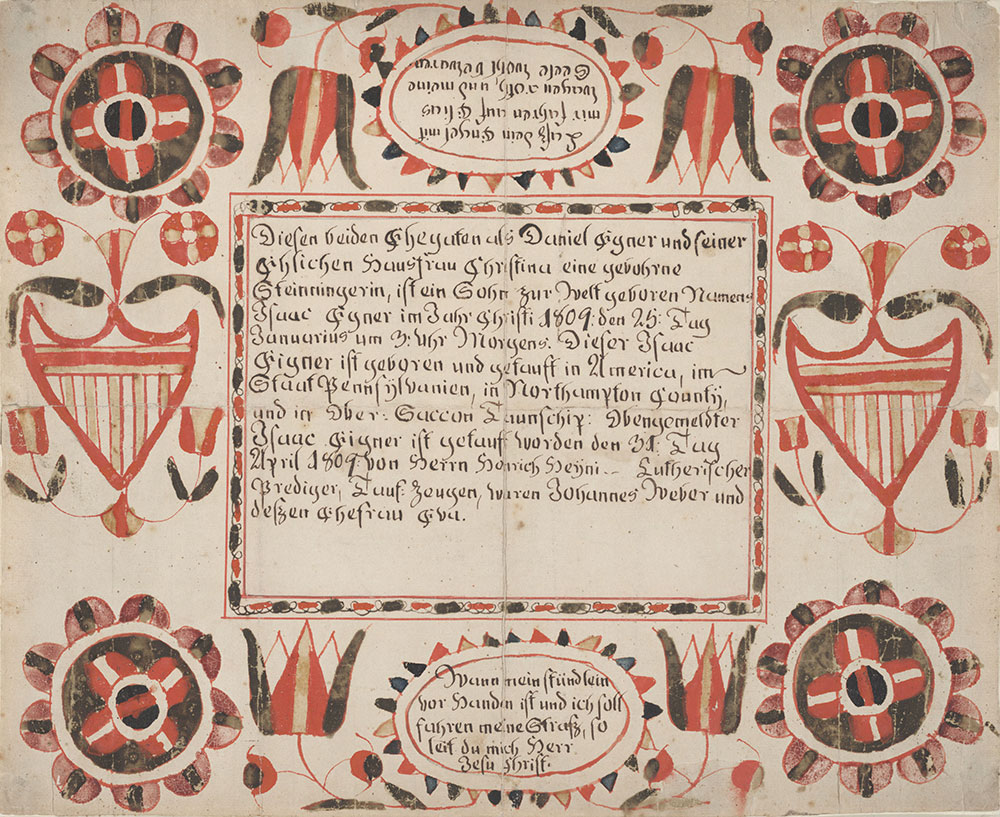 Laß dein Engel mit
mir fahren auf Elias
wagen roth, und meine
Seele wohl bewaren
Diesen beiden Ehegaten als Daniel Eigner und seiner
Ehlichen Hausfrau Christina eine gebohrne
Steinningerin, ist ein Sohn zur Welt geboren Namens
Isaac Eigner im Jahr Christi 1809: den 25: Tag
Januarius um 3: Uhr Morgens. Dieser Isaac
Eigner ist geboren und getauft in America, im
Staat Pennsylvanien, in Northampton County,
und in Ober: Saccon Taunschip: Obengemeldter
Isaac Eigner ist getauft worden den 31: Tag
April 1809: von Herrn Henrich Heyni -- Lutherischer
Prediger, Tauf: Zeugen, waren Johannes Weber und
deßen Ehefrau Eva.
Wann mein stündlein
vor Handen ist und ich soll
fahren meine Straß, so
leit du mich Herr
Jesu Christ.